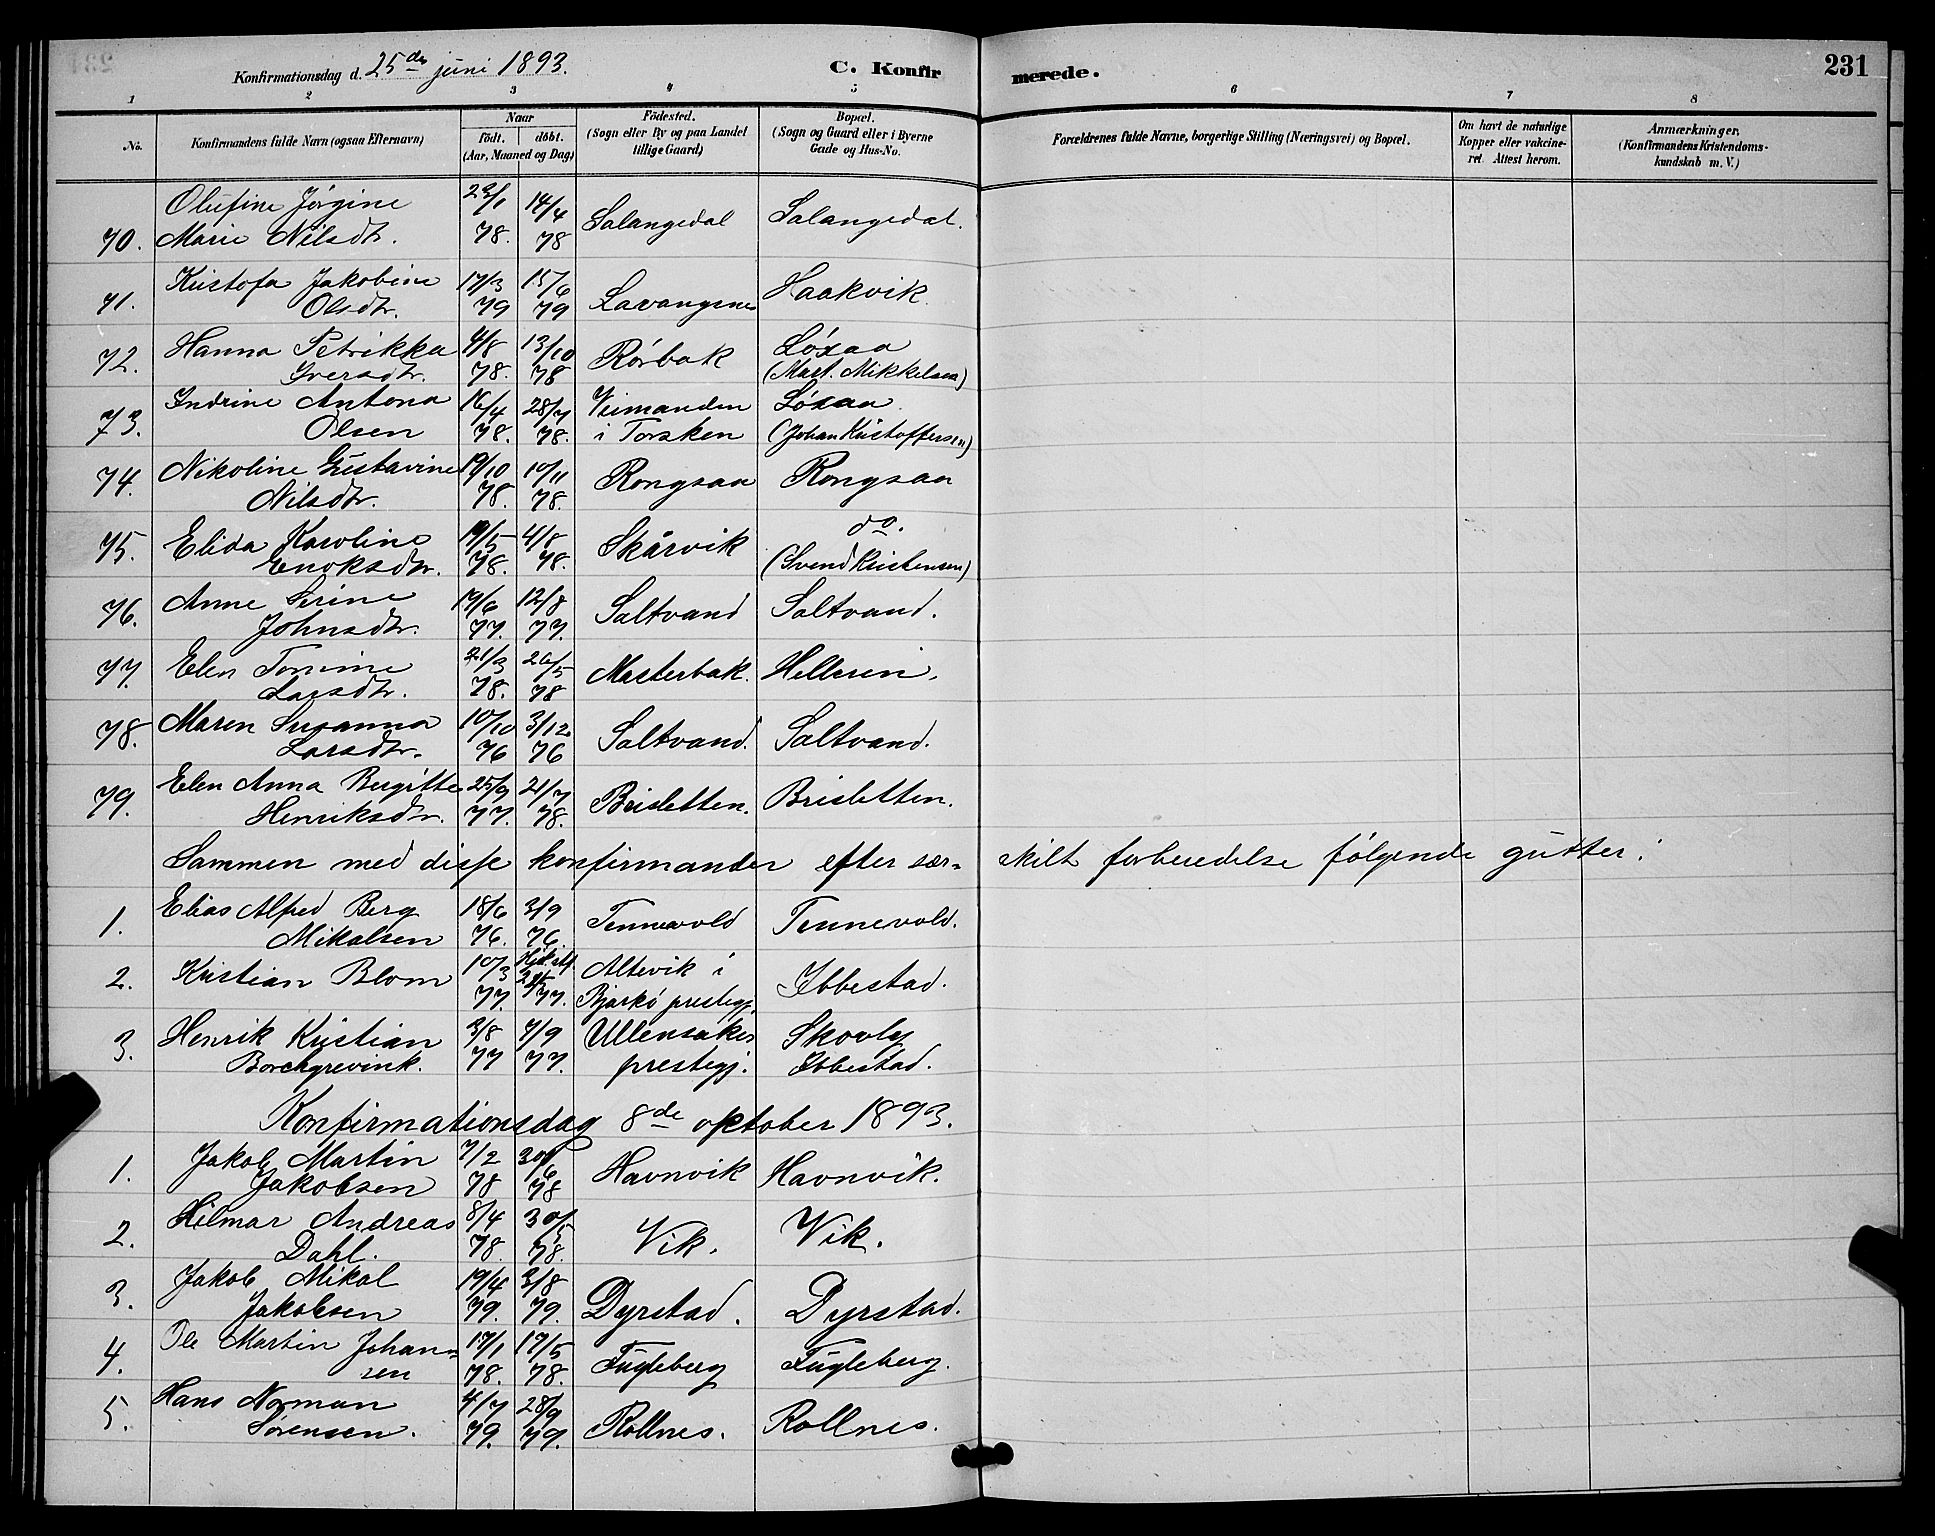 Konfirmationsdag d. 25de juni 1893. C. Konfirmerede. 231
1 2 3 4 5 6 7 8
No. Konfirmandens fulde Navn (ogsaa Efternavn) Naar Født. døbt. (Aar, Maaned og Dag) Fødested. (Sogn eller By og paa Landet tillige Gaard) Bopæl. (Sogn og Gaard eller i Byerne Gade og Hus-No. Forældrenes fulde Navne, borgerlige Stilling (Næringsvei) og Bopæl. Om havt de naturlige Kopper eller vakcineret. Attest herom. Anmærkninger, (Konfirmandens Kristendomskundskab m. V.)
Olufine Jørgine 14/4
70. Marie Nilsdtr. 78. 78 Salangsdal Salangsdal.
Kristofa Jakobine 17/3 15/6 Haakvik.
71. Olsdtr. 79 79 Lavangsnes
Hanna Petrikka 4/8 13/10 Løxaa
72. Iversdtr. 78. 78 Rørbak (Mart. Mikkelsen)
Indrine Antona 16/4 28/7 i Torsken Løxaa.
73. Olsen 78. 78. (Johan Kristoffersen)
Nikoline Gustavine 19/10 10/11
74. Nilsdtr. 78. 78. Rongsaa Rongsaa
Elida Karoline 19/5 4/8 do.
75. Enoksdtr. 78. 78. Skårvik (Svend Kristensen)
Anne Serine 19/6 12/8
76. Johnsdtr. 77. 77. Saltvand Saltvand.
Elen Tomine 21/3 26/5
77. Larsdtr. 78. 78 Mesterbak. Hellaren.
Maren Susanna 10/10 3/12.
78. Larsdtr. 76 76 Saltvand. Saltvand.
Elen Anna Bergitte 25/9 21/7
79. Henriksdtr. 77. 78. Brisletten. Brisletten.
Sammen med disse konfirmander efter særskilt forberedelse følgende gutter:
Elias Alfred Berg 18/6 3/9
1. Mikalsen 76. 76. Tennevold Tennevold.
2. Kristian Blom 10/3 77. 77. Altevik i Bjarkø prestegj. Ibbestad.
Henrik Kristian 3/8 7/9 Ullensaker Skovly
3. Borchgrevink. 77 77. prestegj. Ibbestad.
Konfirmationsdag 8de oktober 1893.
Jakob Martin 7/2 30/6
1. Jakobsen 78 78 Havnvik Havnvik.
Hilmar Andreas 8/4 30/5
2. Dahl. 78. 78. Vik. Vik.
Jakob Mikal 19/4 3/8
3. Jakobsen 79. 79. Dyrstad. Dyrstad.
Ole Martin Johan= 17/1 17/5
4. sen 78. 78. Fugleberg Fugleberg.
Hans Norman 4/7 28/9
5. Sørensen. 79. 79. Rollnes. Rollnes.